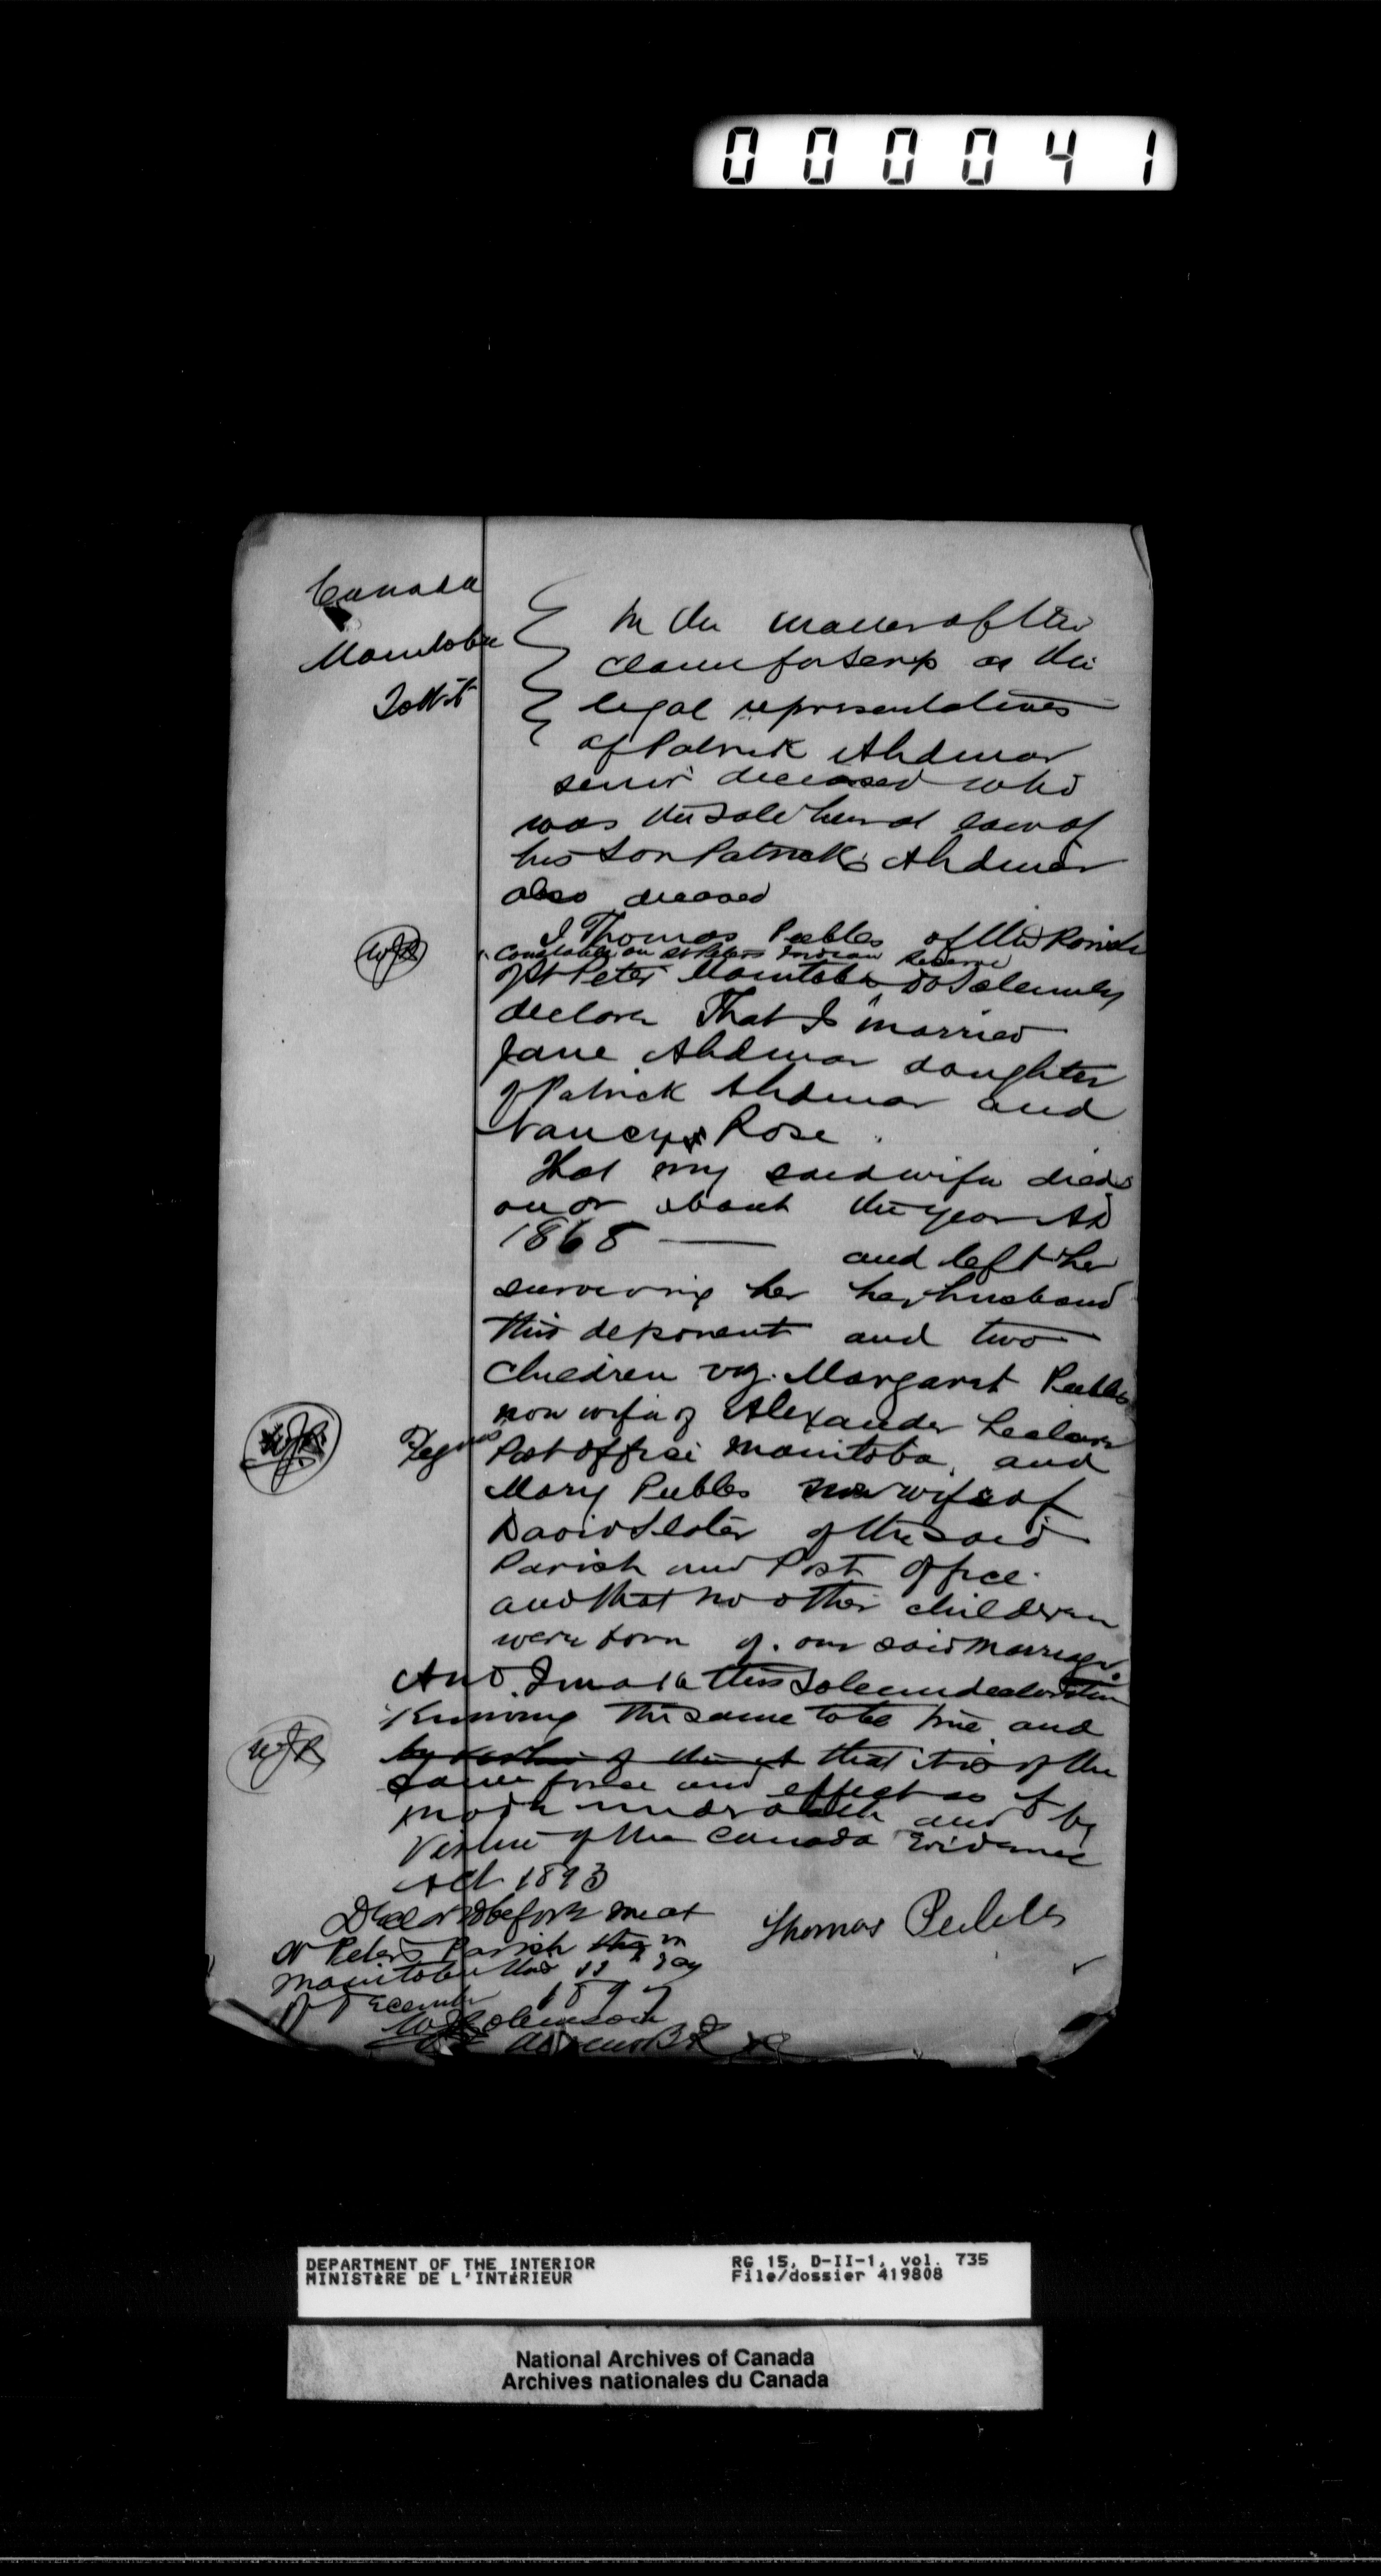 000041
Canada
Manitoba
To Wit
In the matter of the
claim for scrip as the
legal representatives
of Patrick Ahdemar
senior deceased who
was the sole heir at law of
his son Patrick Ahdemar
also deceased
WJR
I Thomas Peebles of the Parish
Constable on St Peters Indian Reserve
of St Peter Manitoba do solemnly
declare That I married
Jane Ahdemar daughter
of Patrick Ahdemar and
Nancy Rose.
That my said wife died
on or about the year AD
1868 — and left her
surviving her her husband
this deponent and two
children viz. Margaret Peebles
now wife of Alexander
WJR
Peguis Post Office Manitoba, and
Mary Peebles now wife of
David Slater of the said
Parish and Post Office.
and that no other children
were born of our said marriage.
And I make this solemn declaration
Knowing the same to be true and
WJR
by virtue of the act that it is of the
same force and effect as if
made under oath and by
Virtue of the Canada Evidence
Act 1893
Declared before me at
St Peters Parish in
Manitoba this 11th day
of December 1897
Thomas Peebles
DEPARTMENT OF THE INTERIOR
MINISTÈRE DE L'INTÉRIEUR
RG 15, D-II-1, vol. 735
File/dossier 419808
National Archives of Canada
Archives nationales du Canada